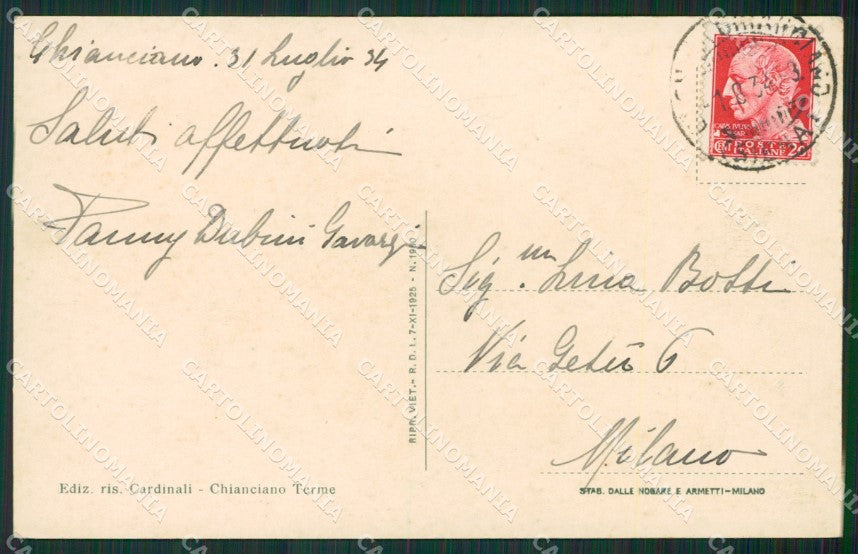 Chianciano. 31 Luglio 34
Saluti affettuosi
Fanny Dubini Gavazzi
Sig.na Luisa Bossi
Via Gesù 6
Milano
Ediz. ris. Cardinali - Chianciano Terme
RIPR. VIET. - R. D. L. 7-XI-1925 - N. 1950
STAB. DALLE NOGARE E ARMETTI - MILANO
POSTE
ITALIANE
CENT 20
CARTOLINOMANIA